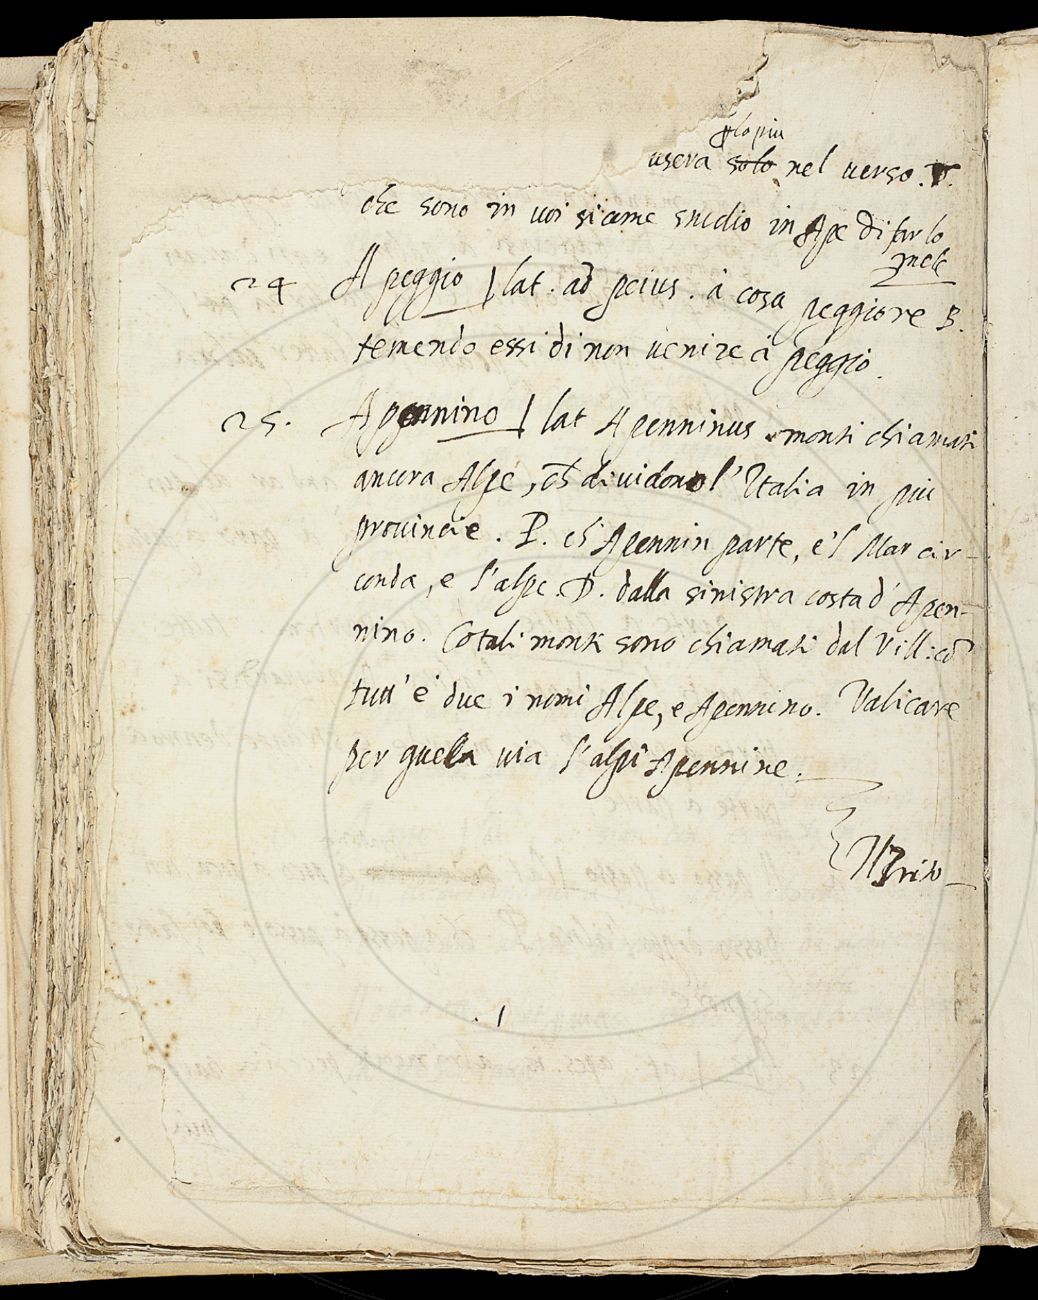 p lo piu
usera solo nel uerso. D.
che sono in uoi si come studio in Ape di far lo
mele
24 A peggio | lat. ad peius. à cosa peggiore B.
temendo essi di non uenire à peggio.
25. Apennino | lat Apenninus monti chiamati
ancora Alpe, ch̃ diuidono l'Italia in piu
prouincie. P. ch'Apennin parte, e'l Mar cir-
conda, e l'alpe. D. dalla sinistra costa d'Apen-
nino. Cotali monti sono chiamati dal Vill: cõ
tutt'è due i nomi Alpe, e Apennino. Valicare
per quella uia l'alpi Apennine.